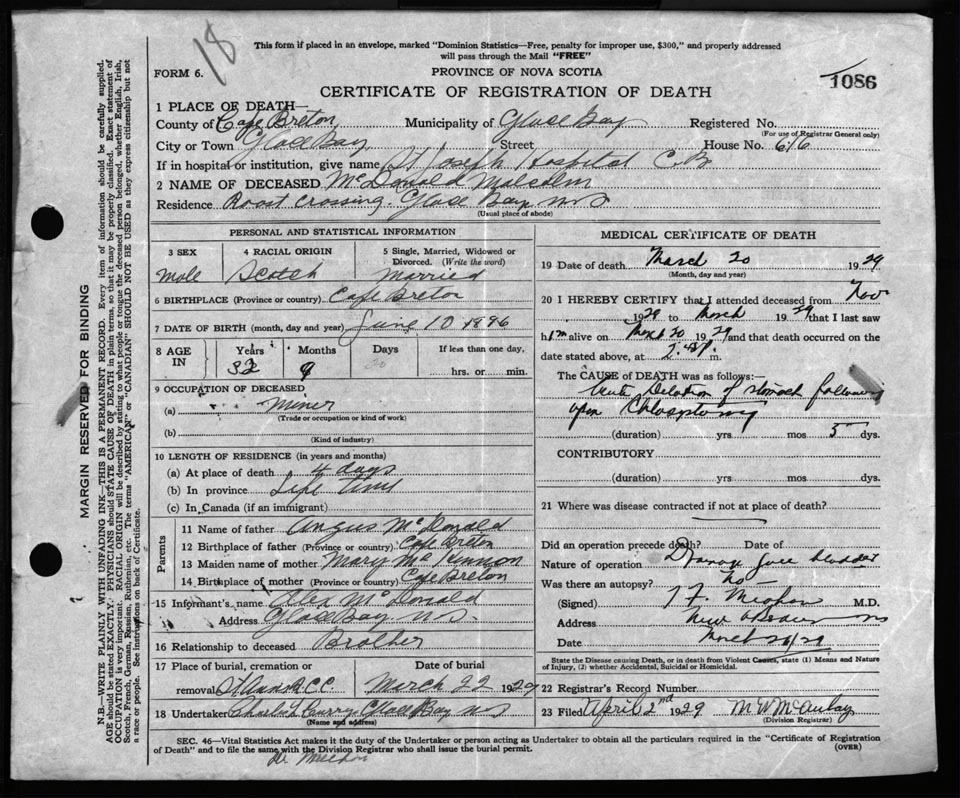 18
This form if placed in an envelope, marked "Dominion Statistics—Free, penalty for improper use, $300," and properly addressed
will pass through the Mail "FREE"
FORM 6.
PROVINCE OF NOVA SCOTIA
1086
CERTIFICATE OF REGISTRATION OF DEATH
1 PLACE OF DEATH—
County of Cape Breton Municipality of Glace Bay Registered No.
(For use of Registrar General only)
City or Town Glace Bay Street House No. 616
If in hospital or institution, give name St Joseph Hospital C.B
2 NAME OF DECEASED McDonald Malcolm
Residence Roost Crossing. Glace Bay NS
(Usual place of abode)
PERSONAL AND STATISTICAL INFORMATION
3 SEX 4 RACIAL ORIGIN 5 Single, Married, Widowed or
Divorced. (Write the word)
Male Scotch Married
6 BIRTHPLACE (Province or country) Cape Breton
7 DATE OF BIRTH (month, day and year) June 10 1896
8 AGE
IN
Years Months Days If less than one day,
32 9
hrs. or min.
9 OCCUPATION OF DECEASED
(a) Miner
(Trade or occupation or kind of work)
(b)
(Kind of industry)
10 LENGTH OF RESIDENCE (in years and months)
(a) At place of death 4 days
(b) In province Life time
(c) In Canada (if an immigrant)
Parents
11 Name of father Angus McDonald
12 Birthplace of father (Province or country) Cape Breton
13 Maiden name of mother Mary McKinnon
14 Birthplace of mother (Province or country) Cape Breton
15 Informant's name Alex McDonald
Address Glace Bay N.S.
16 Relationship to deceased Brother
17 Place of burial, cremation or Date of burial
removal St Anns R.C.C. March 22 1929
18 Undertaker Charles L Curry Glace Bay NS
(Name and address)
MEDICAL CERTIFICATE OF DEATH
19 Date of death March 20 1929
(Month, day and year)
20 I HEREBY CERTIFY that I attended deceased from Nov
1928 to March 1929 that I last saw
him alive on March 20 1929 and that death occurred on the
date stated above, at m.
The CAUSE of DEATH was as follows:—
Acute Dilation of stomach following
upon
(duration) yrs mos 5 dys.
CONTRIBUTORY
(duration) yrs mos dys.
21 Where was disease contracted if not at place of death?
Did an operation precede death? Date of
Nature of operation Drainage Gall bladder
Was there an autopsy? No
(Signed) M.D.
Address New Aberdeen NS
Date March 20/29
State the Disease causing Death, or in death from Violent Causes, state (1) Means and Nature
of Injury, (2) whether Accidental, Suicidal or Homicidal.
22 Registrar's Record Number
23 Filed April 2nd 1929 M W McAulay
(Division Registrar)
SEC. 46—Vital Statistics Act makes it the duty of the Undertaker or person acting as Undertaker to obtain all the particulars required in the "Certificate of Registration
of Death" and to file the same with the Division Registrar who shall issue the burial permit.
(OVER)
MARGIN RESERVED FOR BINDING
N.B.—WRITE PLAINLY WITH UNFADING INK—THIS IS A PERMANENT RECORD. Every item of information should be carefully supplied.
AGE should be stated EXACTLY. PHYSICIANS should STATE CAUSE OF DEATH in plain terms, so that it may be properly classified. Exact statement of
OCCUPATION is very important. RACIAL ORIGIN will be described by stating to what people or tongue the deceased person belonged, whether English, Irish,
Scotch, French, German, Russian, Ruthenian, etc. The terms "AMERICAN" or "CANADIAN" SHOULD NOT BE USED as they express citizenship but not
a race or people. See instructions on back of Certificate.